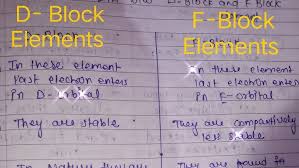 D- Block
Elements
F-Block
Elements
In these element
last electron enters
In D-orbital
They are stable
In these element
last electron enters
In F-orbital
They are compartively
less stable